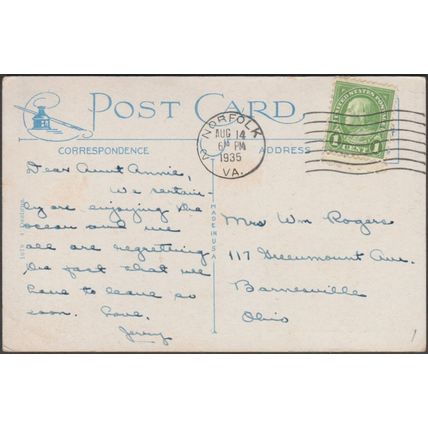 POST CARD
CORRESPONDENCE
ADDRESS
NORFOLK
AUG 14
6 PM
1935
VA.
UNITED STATES POSTAGE
1 CENT 1
Dear Aunt Annie,
We certain-
ly are enjoying the
ocean and we
all are regretting
the fact that we
have to leave so
soon. Love,
Jerry
MADE IN U.S.A.
Mrs Wm Rogers
117 Greenmount Ave.
Barnesville
Ohio